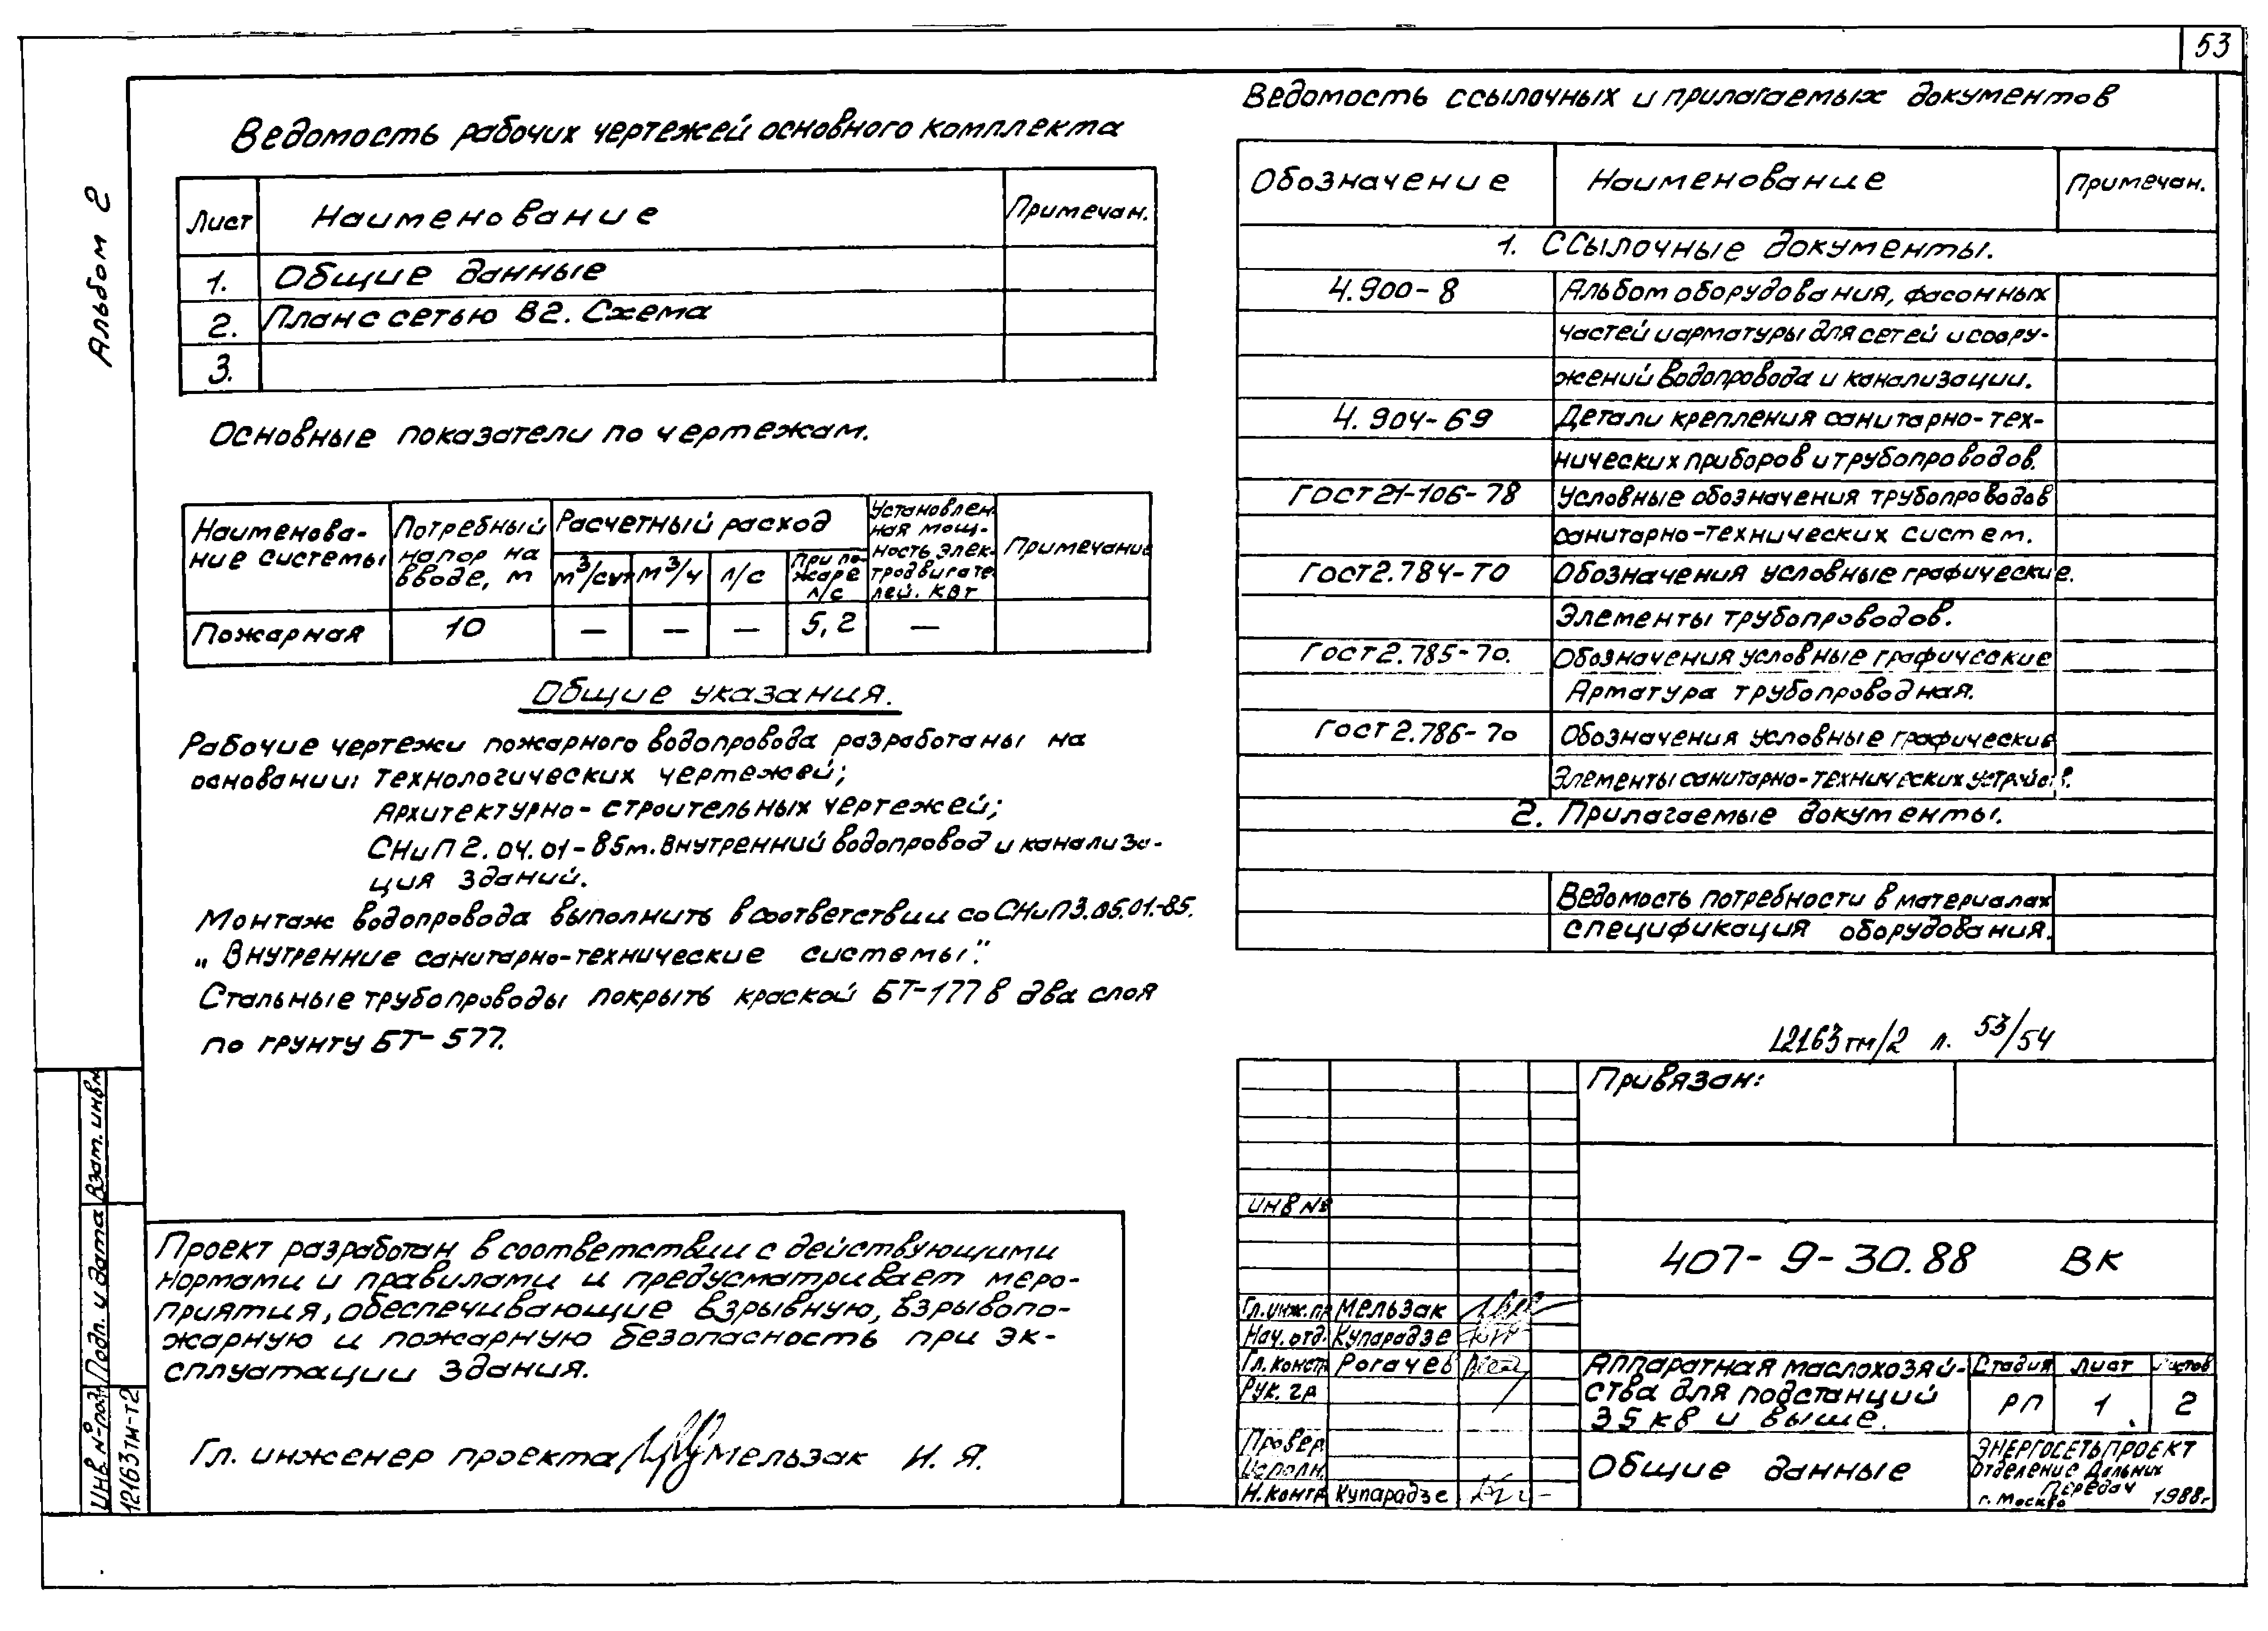 53
Альбом 2
Ведомость рабочих чертежей основного комплекта
Лист Наименование Примечан.
1. Общие данные
2. План с сетью В2. Схема
3.
Основные показатели по чертежам.
Наименова-
ние системы
Потребный
напор на
вводе, м
Расчетный расход
м³/сут м³/ч л/с
При по-
жаре
л/с
Установлен
ная мощ-
ность элек-
тродвигате
лей. кВт
Примечание
Пожарная 10 — — — 5,2 —
Общие указания.
Рабочие чертежи пожарного водопровода разработаны на
основании: технологических чертежей;
Архитектурно-строительных чертежей;
СНиП 2.04.01-85м. Внутренний водопровод и канализа-
ция зданий.
Монтаж водопровода выполнить в соответствии со СНиП 3.05.01.-85.
„Внутренние санитарно-технические системы".
Стальные трубопроводы покрыть краской БТ-177 в два слоя
по грунту БТ-577.
Проект разработан в соответствии с действующими
нормами и правилами и предусматривает меро-
приятия, обеспечивающие взрывную, взрывопо-
жарную и пожарную безопасность при эк-
сплуатации здания.
Гл. инженер проекта Мельзак И. Я.
Взам. инв№
Подп. и дата
Инв. № подл
12163тм-т2
Ведомость ссылочных и прилагаемых документов
Обозначение Наименование Примечан.
1. Ссылочные документы.
4.900-8 Альбом оборудования, фасонных
частей и арматуры для сетей и соору-
жений водопровода и канализации.
4.904-69 Детали крепления санитарно-тех-
нических приборов и трубопроводов.
ГОСТ 21-106-78 Условные обозначения трубопроводов
санитарно-технических систем.
ГОСТ 2.784-70 Обозначения условные графические.
Элементы трубопроводов.
ГОСТ 2.785-70. Обозначения условные графические
Арматура трубопроводная.
ГОСТ 2.786-70 Обозначения условные графические
Элементы санитарно-технических устройств.
2. Прилагаемые документы.
Ведомость потребности в материалах
спецификация оборудования.
12163тм/2 л. 53/54
Привязан:
инв №
407-9-30.88 ВК
Гл.инж.пр Мельзак
Нач.отд. Купарадзе
Гл.констр Рогачев
Рук. гр
Провер.
Исполн.
Н.контр Купарадзе
Аппаратная маслохозяй-
ства для подстанций
35 кв и выше.
Стадия Лист Листов
РП 1 2
Общие данные
ЭНЕРГОСЕТЬПРОЕКТ
Отделение Дальних
Передач
г. Москва 1988г.